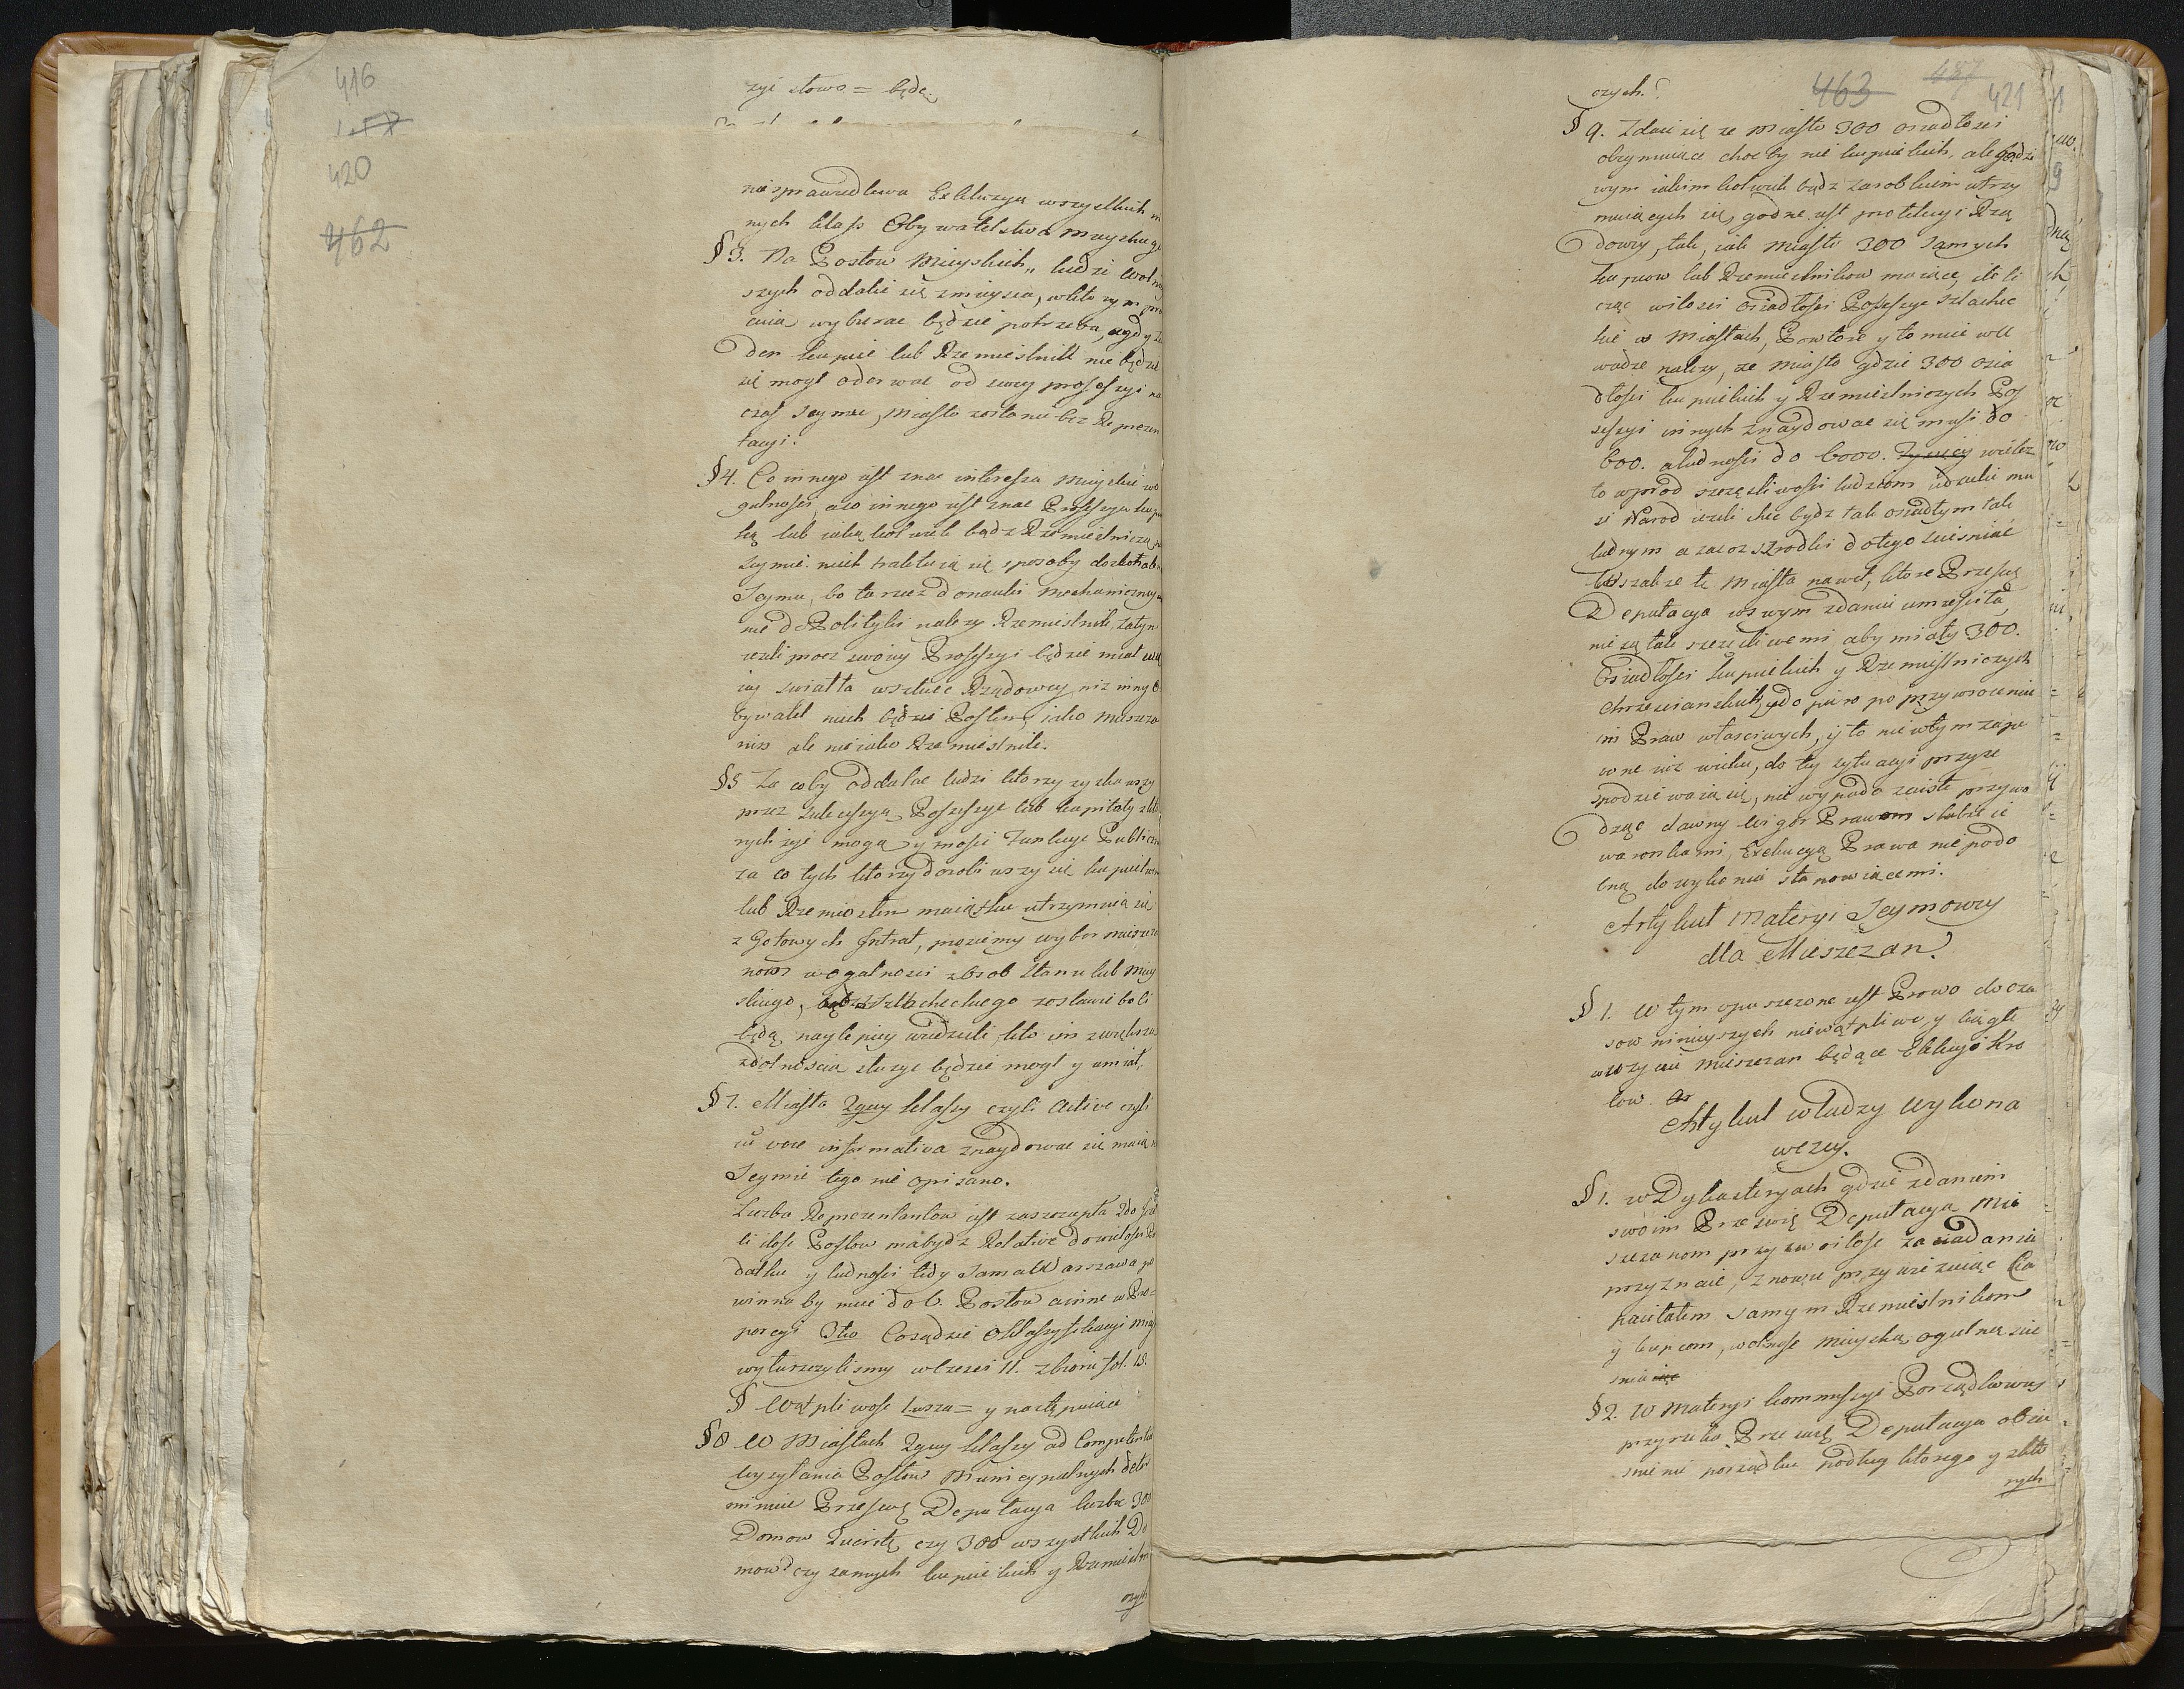 416
420
462
zyi słowo = będę
niesprawiedliwa Exkluzya wszystkich in
nych klass Obywatelstwa
§3. Na Posłow Mieyskich, ludzi
szych oddalić się zmieysca, wktorym
wybierac będzie potrzeba, a gdy Ża
den kupiec lub Rzemieslnik nie będzie
się mogł oderwac od swey professyi na
czas Seymu, Miasto zostanie bez Reprezen
tacyi.
§4. Co innego iest znac interessa Mieyskie wo
gulnosci, a co innego iest znac Professyą kupie
ką lub iakążkolwiek bądz Rzemieslniczą, na
Seymie niech traktuią się sposoby
Seymu, bo ta rzecz do nauki mechaniczney a
nie do Polityki nalezy Rzemieslnik, zatym
iezeli procz swoiey Professyi będzie miał
swiatła wsztuce Rządowey niz inny O
bywatel niech będzie Posłem, iako Mieszcza
nin ale nie iako Rzemieslnik.
§5 Za coby oddalac ludzi ktorzy zyskawszy
przez Sukcessyą Possessye lub kapitały z kto
rych zyć mogą y nosić Funkcye Publiczne
za co tych ktorzy dorobiwszy się kupiectwem
lub Rzemiosłem maiątku utrzymuią się
z Gotowych Intrat, prosiemy wybor mieszcza
now wogulnosci z osob Stanu lub Miey
skiego, bądz Szlacheckiego zostawić bo ci
będą naylepiey wiedzieli, kto im zwiększą
zdolnoscią słuzyc będzie mogł y umiał.
§7. Miasta 2giey klassy czyli Active czyli
in voce informativa znaydowac się maią na
Seymie tego nie opisano.
Liczba Reprezentantow iest zaszczupła
li ilosc Posłow ma bydz Relative do wielosci Po
datku y ludnosci tedy Sama Warszawa po
winna by miec do 6. Posłow a inne w Pro=
porcyi 3tio Co sądzić o klassyfikacyi Miast
wytłuszczylismy wczesci 11. zbioru fol. 15.
§ Wątpliwosc 1wsza = y następuiące
§8 W Miastach 2giey klassy ad Competentia
wysyłania Posłow Municypalnych deter
minuie Przeswę: Deputacya liczbe 300
Domow kwestę czy 300 wszystkich Do
mow? czy samych kupieckich y Rzemieslni
czych
czych?
463 421
§9. Zdaie się ze Miasto 300 osiadłosci
obeymuiące choc by nie kupieckich, ale godzi
wym iakimkolwiek bądz zarobkiem utrzy
muiących się, godne iest protekcyi Rzą
dowey, tak, iak Miasto 300 samych
kupcow lub Rzemieslnikow maiące, ile li
cząc wilosci osiadłosci Possessye szlachec
kie w Miastach, Powtore y to miec w u
wadze nalezy, ze Miasto gdzie 300 osia
dłosci kupieckich y Rzemieslniczych Pos
sessyi innych znaydowac się musi do
600. a ludnosci do 6000. wielez
to wprzod szczęsliwosci ludziom udzielic mu
si Narod iezeli chce bydz tak osiadłym tak
ludnym a zacoz srodki do tego sciesniać
Wszakze te Miasta nawet, ktore Przeswę:
Deputacya wswym zdaniu umiesciła,
nie są tak szczęsliwemi aby miały 300.
Osiadłosci kupieckich y Rzemieslniczych
chrzescianskich, gdo piero po przywroceniu
im Praw własciwych, y to nie wtym zape
wne iuz wieku, do tey sytuacyi przyiść
spodziewaią się, nie wypada zaiste przywo
dząc dawny wigor Prawom słabić ie
warunkami, Exekucyą Prawa niepodo
bną do wykonia stanowiącemi.
Artykuł Materyi Seymowey
dla Mieszczan.
§1. W tym opuszczone iest Prawo do cza
sow ninieyszych niewątpliwe y ciągle
w uzyciu Mieszczan będące Elekcyi Kro
low
Artykuł władzy wykona
wczey.
§1. w Dykasteryach gdzie zdaniem
swoim Przeswię: Deputacya Mie
szczanom przyzwoitosc zasiadania
przyznaie, znowu przywięzuiąc Ca
pacitatem samym Rzemieslnikom
y kupcom, wolnosc Mieyską ogulną scie
snia
§2. W Materyi kommissyi Porządkowey
przyrzeka Przeswę: Deputacya obia
snienie porządku podług ktorego y z kto
rych